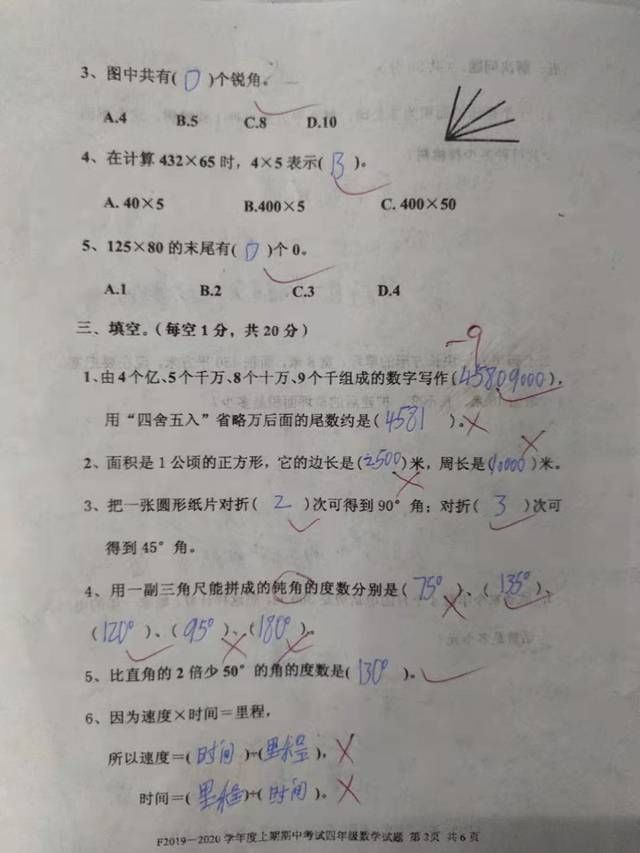 3、图中共有( D )个锐角。
A.4 B.5 C.8 D.10
4、在计算 432×65 时，4×5 表示( B )。
A. 40×5 B.400×5 C. 400×50
5、125×80 的末尾有( D )个 0。
A.1 B.2 C.3 D.4
三、填空。（每空 1 分，共 20 分）
-9
1、由 4 个亿、5 个千万、8 个十万、9 个千组成的数字写作( 45809000 )，
用“四舍五入”省略万后面的尾数约是( 4581 )。
2、面积是 1 公顷的正方形，它的边长是( 2500 )米，周长是( 10000 )米。
3、把一张圆形纸片对折( 2 )次可得到 90°角；对折( 3 )次可
得到 45°角。
4、用一副三角尺能拼成的钝角的度数分别是( 75° )、( 135° )、
( 120° )、( 95° )、( 180° )。
5、比直角的 2 倍少 50°的角的度数是( 130° )。
6、因为速度×时间＝里程，
所以速度＝( 时间 )÷( 里程 )，
时间＝( 里程 )÷( 时间 )。
F2019—2020 学年度上期期中考试四年级数学试题 第 2页 共 6 页